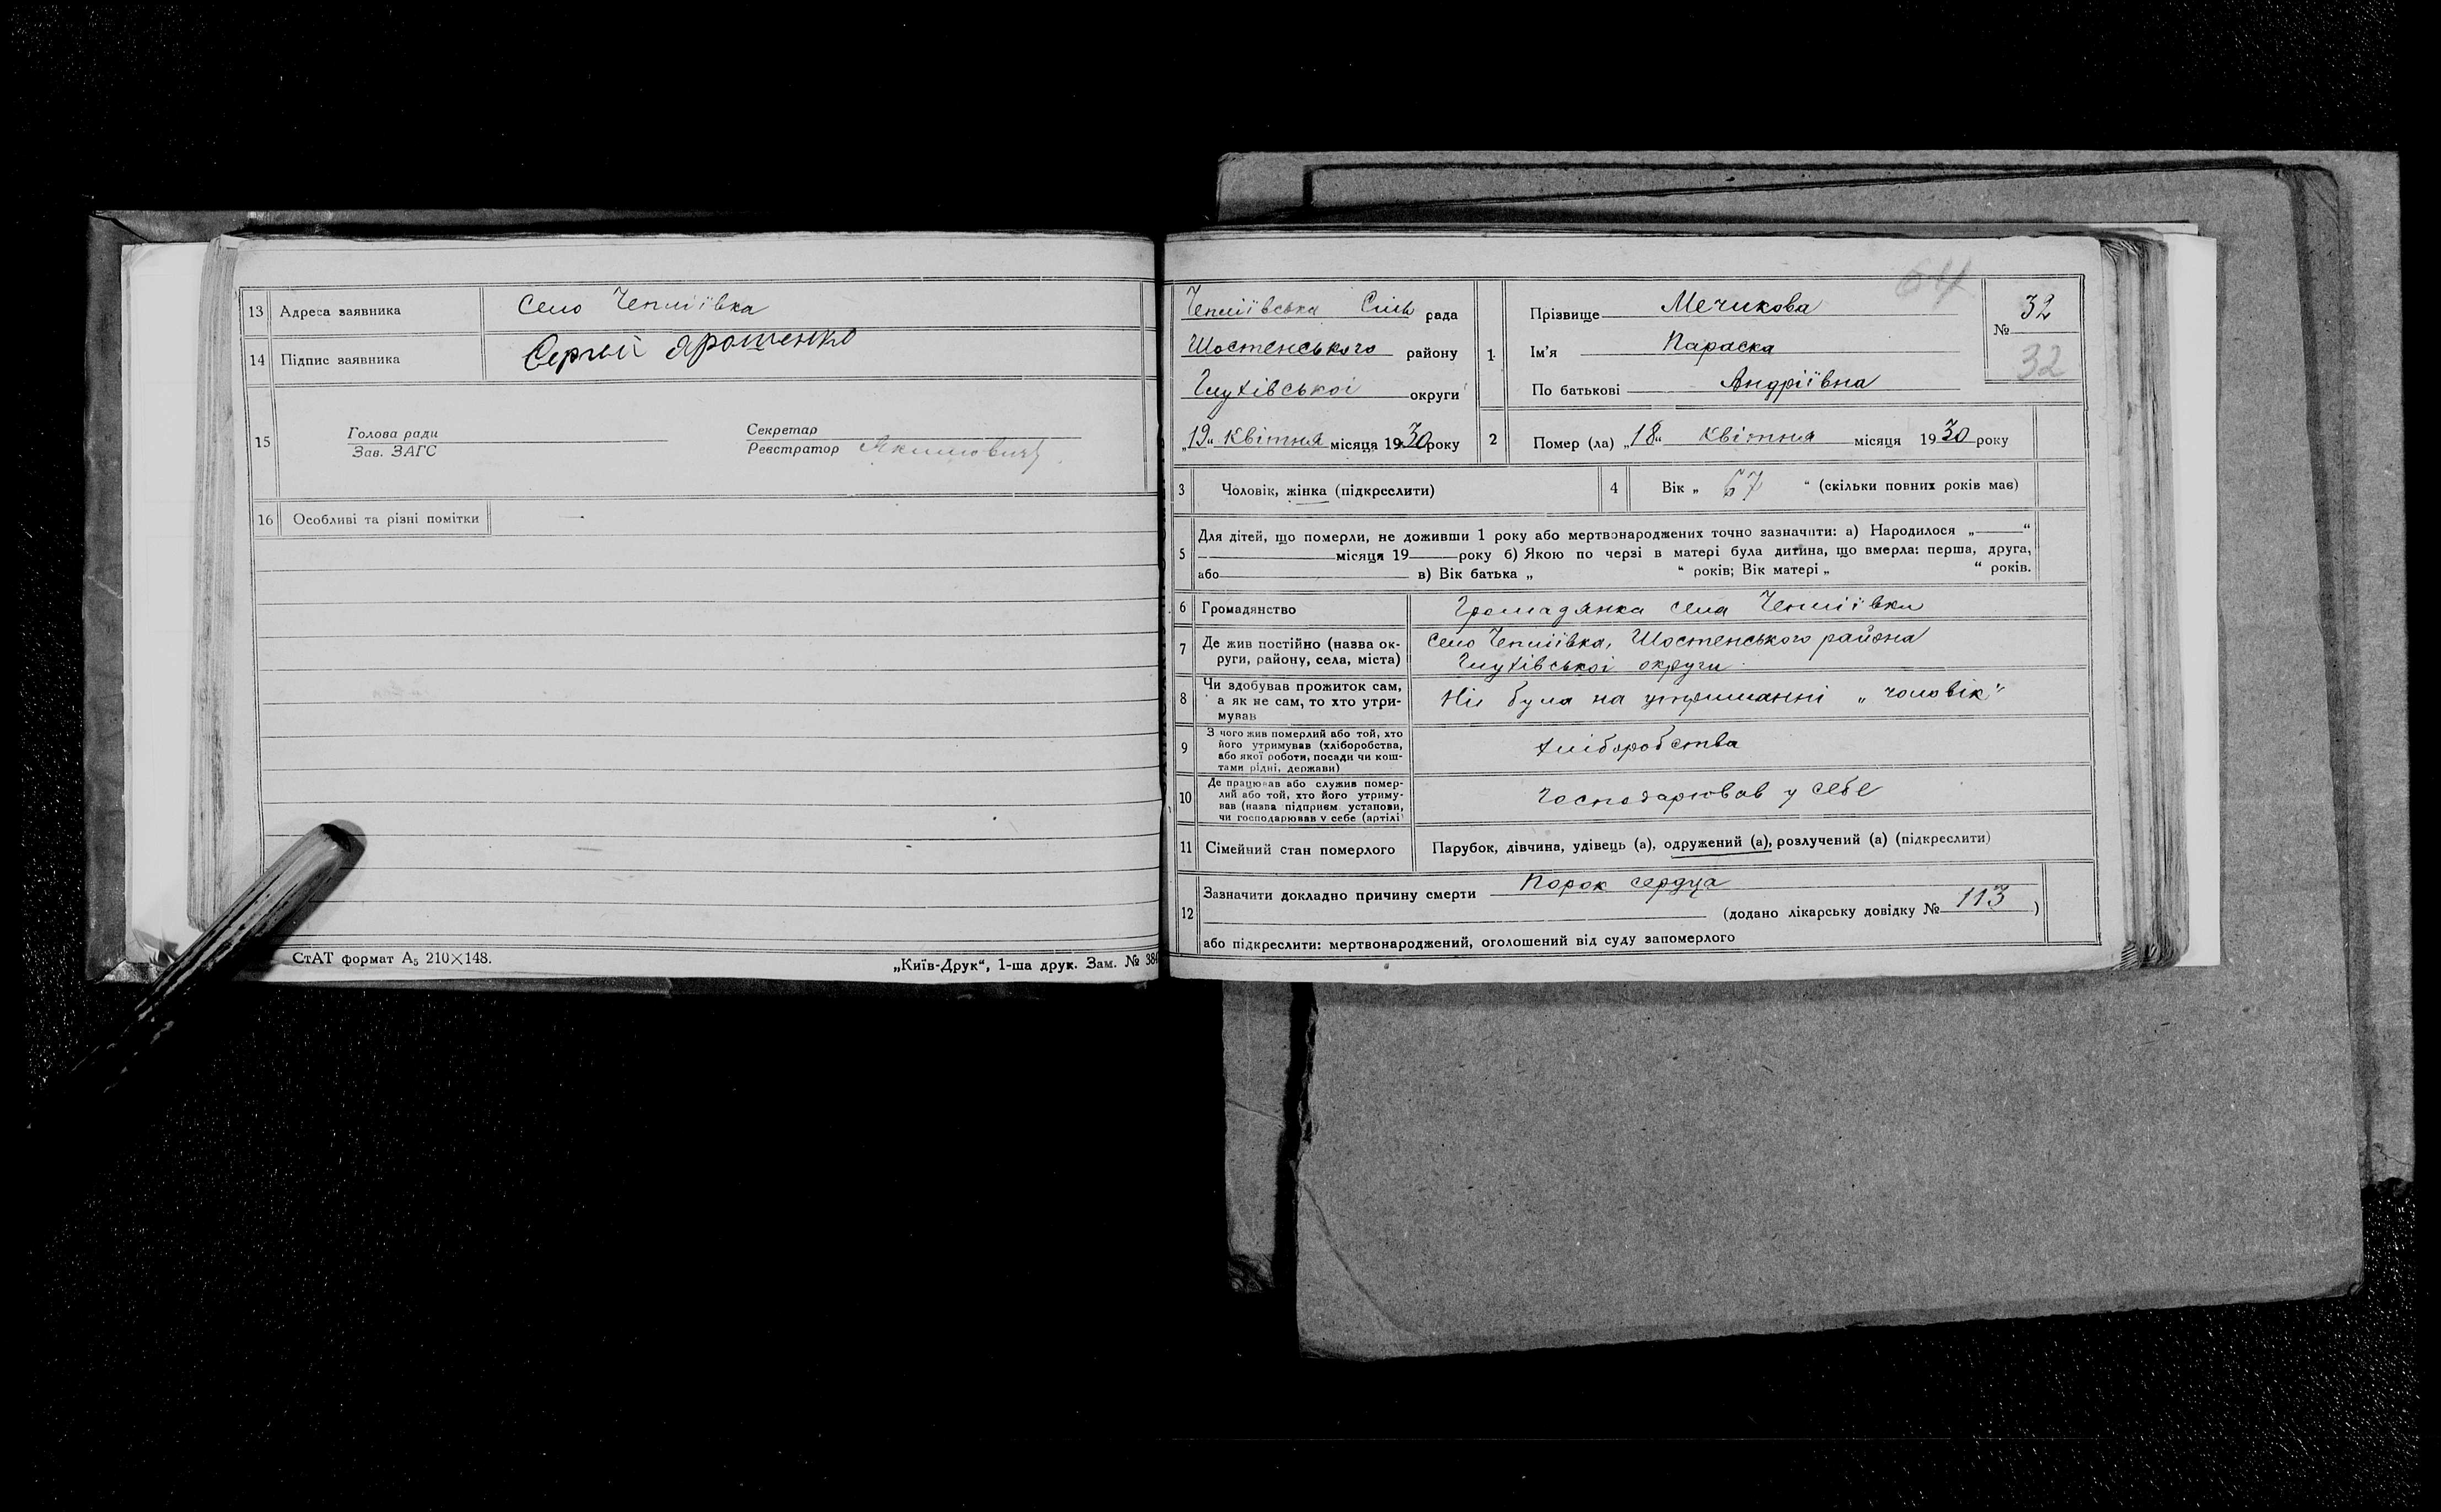 13 Адреса заявника Село Чепліївка
14 Підпис заявника Сергей Ярошенко
15 Голова ради Секретар
Зав. ЗАГС Реєстратор Якимович
16 Особливі та різні помітки —
СтАТ формат А₅ 210×148.
„Київ-Друк“, 1-ша друк. Зам. № 384
64
Чепліївська Сіль рада
Шостенського району
Глухівської округи
„19“ Квітня місяця 1930 року
1 Прізвище Мечикова
Ім'я Параска
По батькові Андріївна
№ 32
32
2 Помер (ла) „18“ Квітня місяця 1930 року
3 Чоловік, жінка (підкреслити)
4 Вік „ 67 “ (скільки повних років має)
5 Для дітей, що померли, не доживши 1 року або мертвонароджених точно зазначити: а) Народилося „—“
— місяця 19— року б) Якою по черзі в матері була дитина, що вмерла: перша, друга,
або— в) Вік батька „ “ років; Вік матері „ “ років.
6 Громадянство Громадянка села Чепліївки
7 Де жив постійно (назва ок- Село Чепліївка, Шостенського района
руги, району, села, міста) Глухівської округи
8 Чи здобував прожиток сам,
а як не сам, то хто утри- Ні була на утриманні „чоловік“
мував
9 З чого жив померлий або той, хто
його утримував (хліборобства, хліборобства
або якої роботи, посади чи кош-
тами рідні, держави)
10 Де працював або служив помер-
лий або той, хто його утриму- Господарював у себе
вав (назва підприєм. установи,
чи господарював у себе (артілі)
11 Сімейний стан померлого Парубок, дівчина, удівець (а), одружений (а), розлучений (а) (підкреслити)
12 Зазначити докладно причину смерти Порок сердца
(додано лікарську довідку № 113)
або підкреслити: мертвонароджений, оголошений від суду запомерлого